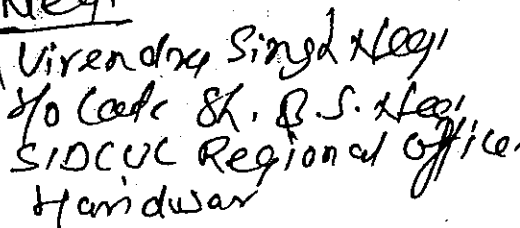 Negi
Virendra Singh Negi
S/o Late Sh. B.S. Negi
SIDCUL Regional Office,
Haridwar